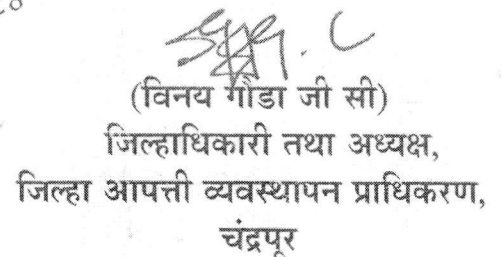 (विनय गौडा जी सी)
जिल्हाधिकारी तथा अध्यक्ष,
जिल्हा आपत्ती व्यवस्थापन प्राधिकरण,
चंद्रपूर